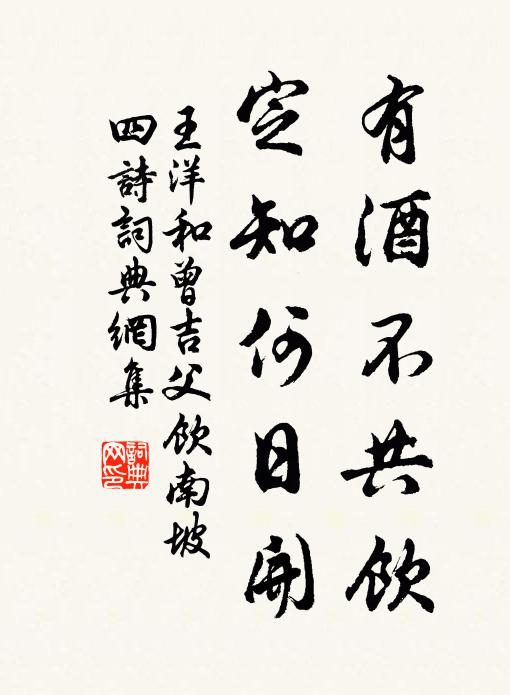 有酒不共飲
定知何日開
王洋和曾吉父飲南坡
四詩詞典網集
詞典
网印